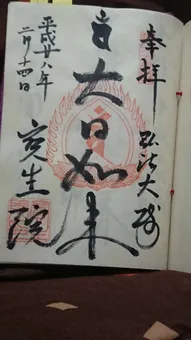 奉拝
弘法大師
大日如来
平成廿八年
二月十四日
生院